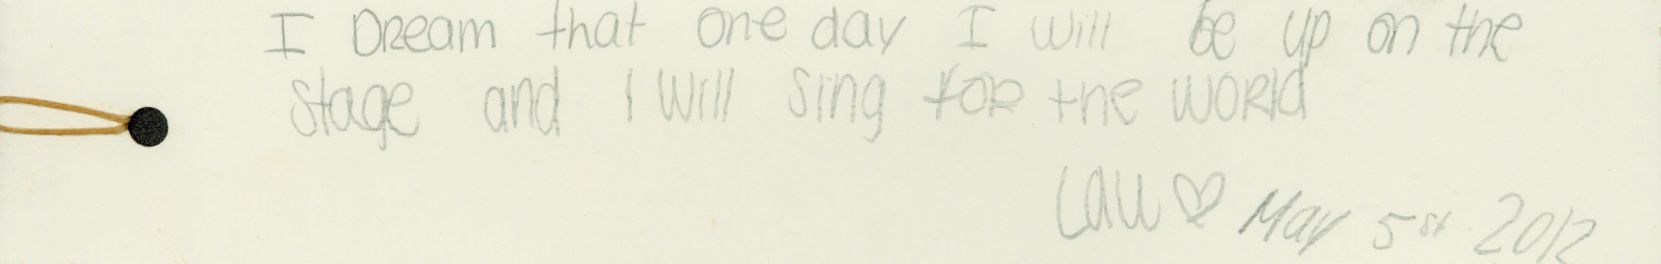 I Dream that one day I will be up on the
stage and I will sing for the world
Lau♡ May 5st 2012